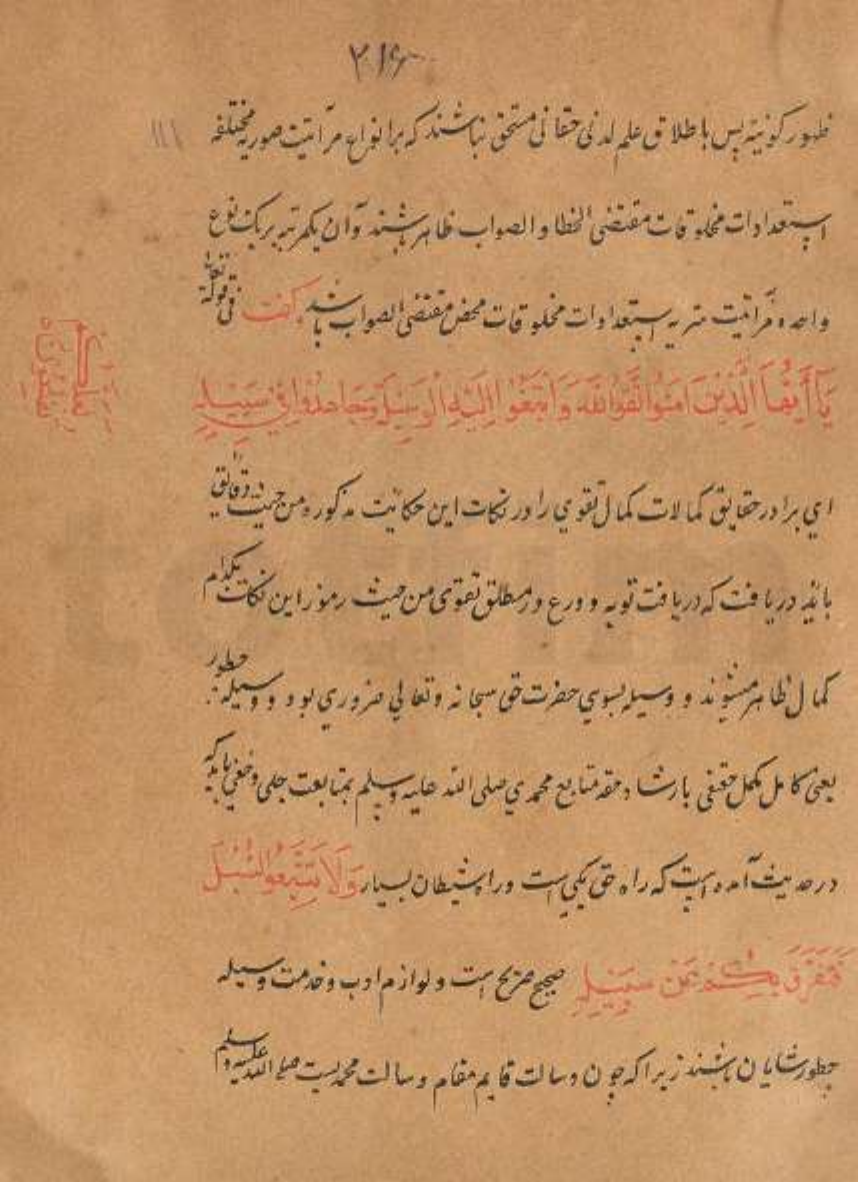 ۲۱۶
ظهور کونیه پس باطلاق علم لدنی حقانی مستحق نباشند که بر انواع مرآتیت صوریه مختلفه
استعدادات مخلوقات مقتضی الخطا و الصواب ظاهر باشند و آن یکمرتبه بر یک نوع
واحده مرآتیت استعدادات مخلوقات محض مقتضی الصواب باشد کفت فی قوله تعالی
یَا أَیُّهَا الَّذِینَ آمَنُوا اتَّقُوا اللَّهَ وَابْتَغُوا إِلَیْهِ الْوَسِیلَةَ وَجَاهِدُوا فِی سَبِیلِهِ
ای برادر حقایق کمالات کمال تقوی را در نکات این حکایت مذکوره من حیث دقایق
باید دریافت که دریافت توبه و ورع و مطلق تقوی من حیث رموز این نکات بکدام
کمال ظاهر میشوند و وسیله بسوی حضرت حق سبحانه و تعالی ضروری بود و وسیله چطور
یعنی کامل مکمل حقیقی بارشاد حقه متابع محمدی صلی الله علیه وسلم بمتابعت جلی وخفی باید که
در حدیث آمده است که راه حق یکی است و راه شیطان بسیار وَلَا تَتَّبِعُوا السُّبُلَ
فَتَفَرَّقَ بِکُمْ عَنْ سَبِیلِهِ صحیح صریح است و لوازم ادب و خدمت وسیله
چطور شایان باشند زیرا که چون وسالت قایم مقام وسالت محمدیست صلی الله علیه وسلم